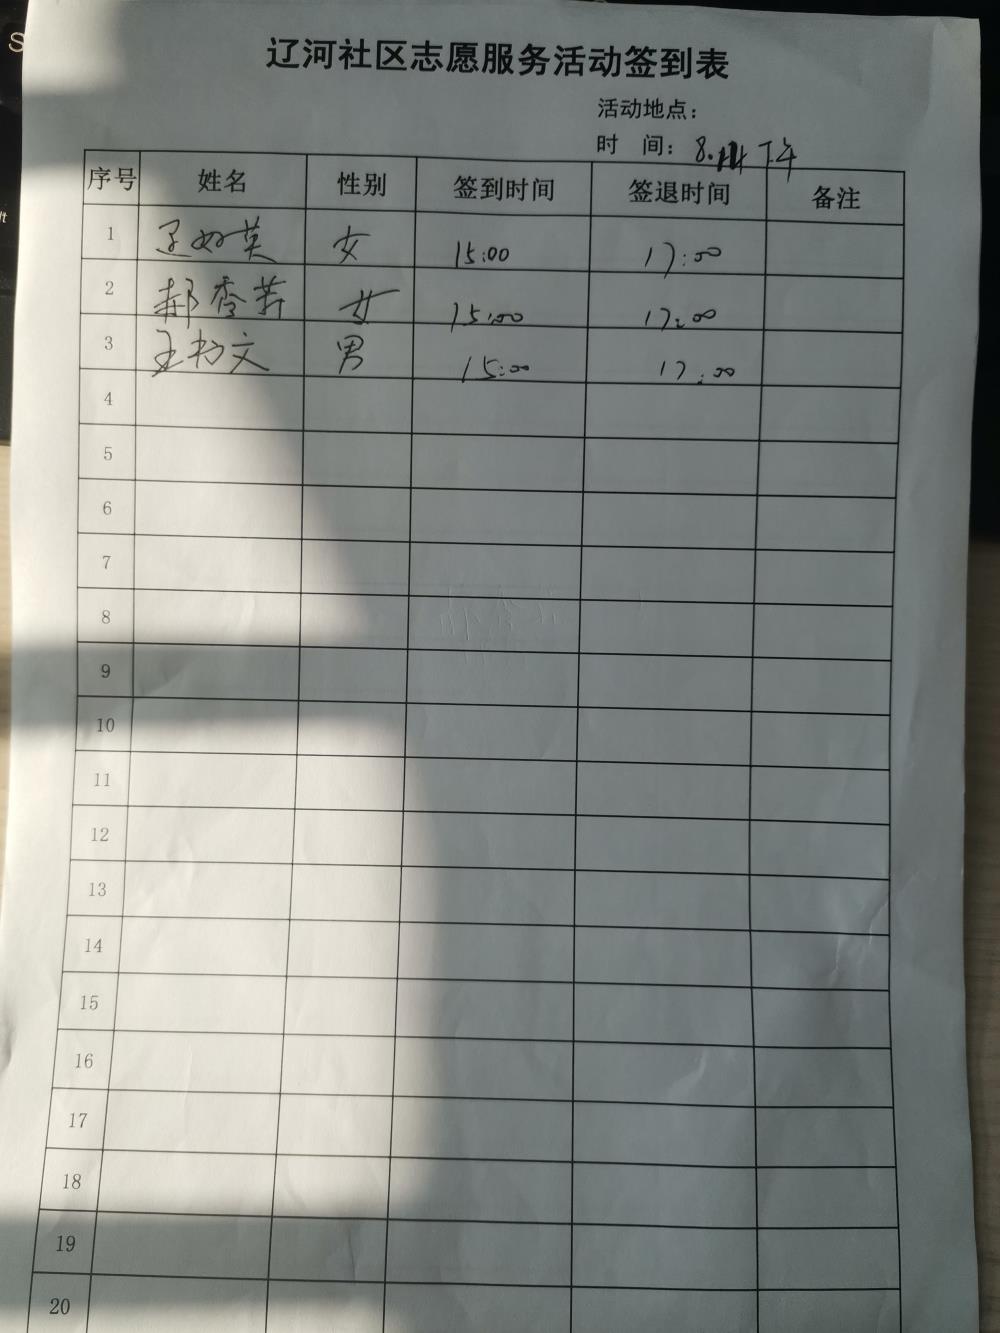 辽河社区志愿服务活动签到表
活动地点：
时 间： 8. 下午
序号 姓名 性别 签到时间 签退时间 备注
1 英 女 15:00 17:00
2 郝秀 女 15:00 17:00
3 王 文 男 15:00 17:00
4
5
6
7
8
9
10
11
12
13
14
15
16
17
18
19
20